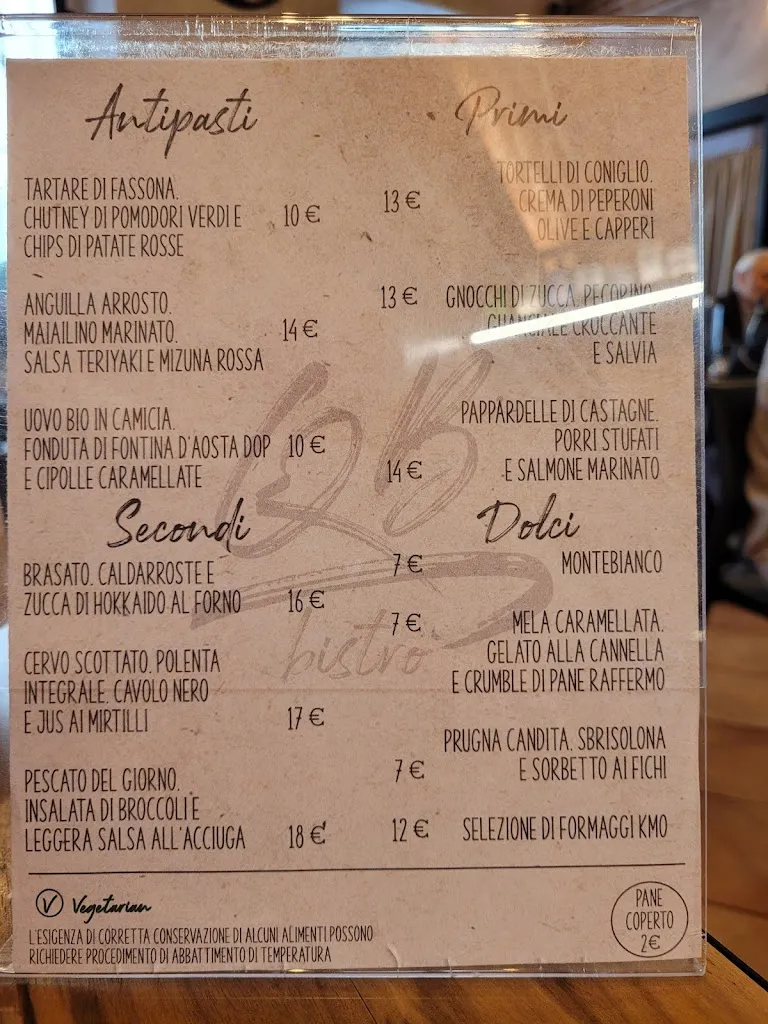 Antipasti
TARTARE DI FASSONA.
CHUTNEY DI POMODORI VERDI E
CHIPS DI PATATE ROSSE
10 €
ANGUILLA ARROSTO.
MAIAILINO MARINATO.
SALSA TERIYAKI E MIZUNA ROSSA
14 €
UOVO BIO IN CAMICIA.
FONDUTA DI FONTINA D'AOSTA DOP
E CIPOLLE CARAMELLATE
10 €
Secondi
BRASATO. CALDARROSTE E
ZUCCA DI HOKKAIDO AL FORNO
16 €
CERVO SCOTTATO. POLENTA
INTEGRALE. CAVOLO NERO
E JUS AI MIRTILLI
17 €
PESCATO DEL GIORNO.
INSALATA DI BROCCOLI E
LEGGERA SALSA ALL'ACCIUGA
18 €
Primi
13 €
TORTELLI DI CONIGLIO.
CREMA DI PEPERONI
OLIVE E CAPPERI
13 €
GNOCCHI DI ZUCCA. PECORINO
GUANCIALE CROCCANTE
E SALVIA
PAPPARDELLE DI CASTAGNE.
PORRI STUFATI
E SALMONE MARINATO
14 €
Dolci
7 €
MONTEBIANCO
7 €
MELA CARAMELLATA.
GELATO ALLA CANNELLA
E CRUMBLE DI PANE RAFFERMO
PRUGNA CANDITA. SBRISOLONA
E SORBETTO AI FICHI
7 €
12 €
SELEZIONE DI FORMAGGI KM0
QB
bistrò
V Vegetarian
L'ESIGENZA DI CORRETTA CONSERVAZIONE DI ALCUNI ALIMENTI POSSONO
RICHIEDERE PROCEDIMENTO DI ABBATTIMENTO DI TEMPERATURA
PANE
COPERTO
2€